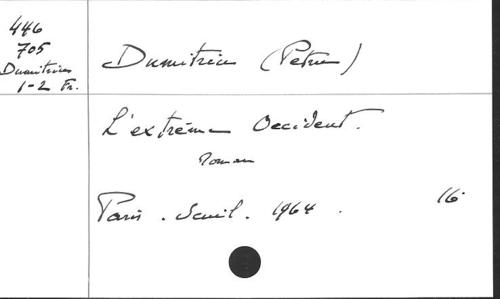 446
705
Dumitriu
1-2 Fr.
Dumitriu (Petru)
L'extrême Occident.
roman
Paris. Seuil. 1964.
16°